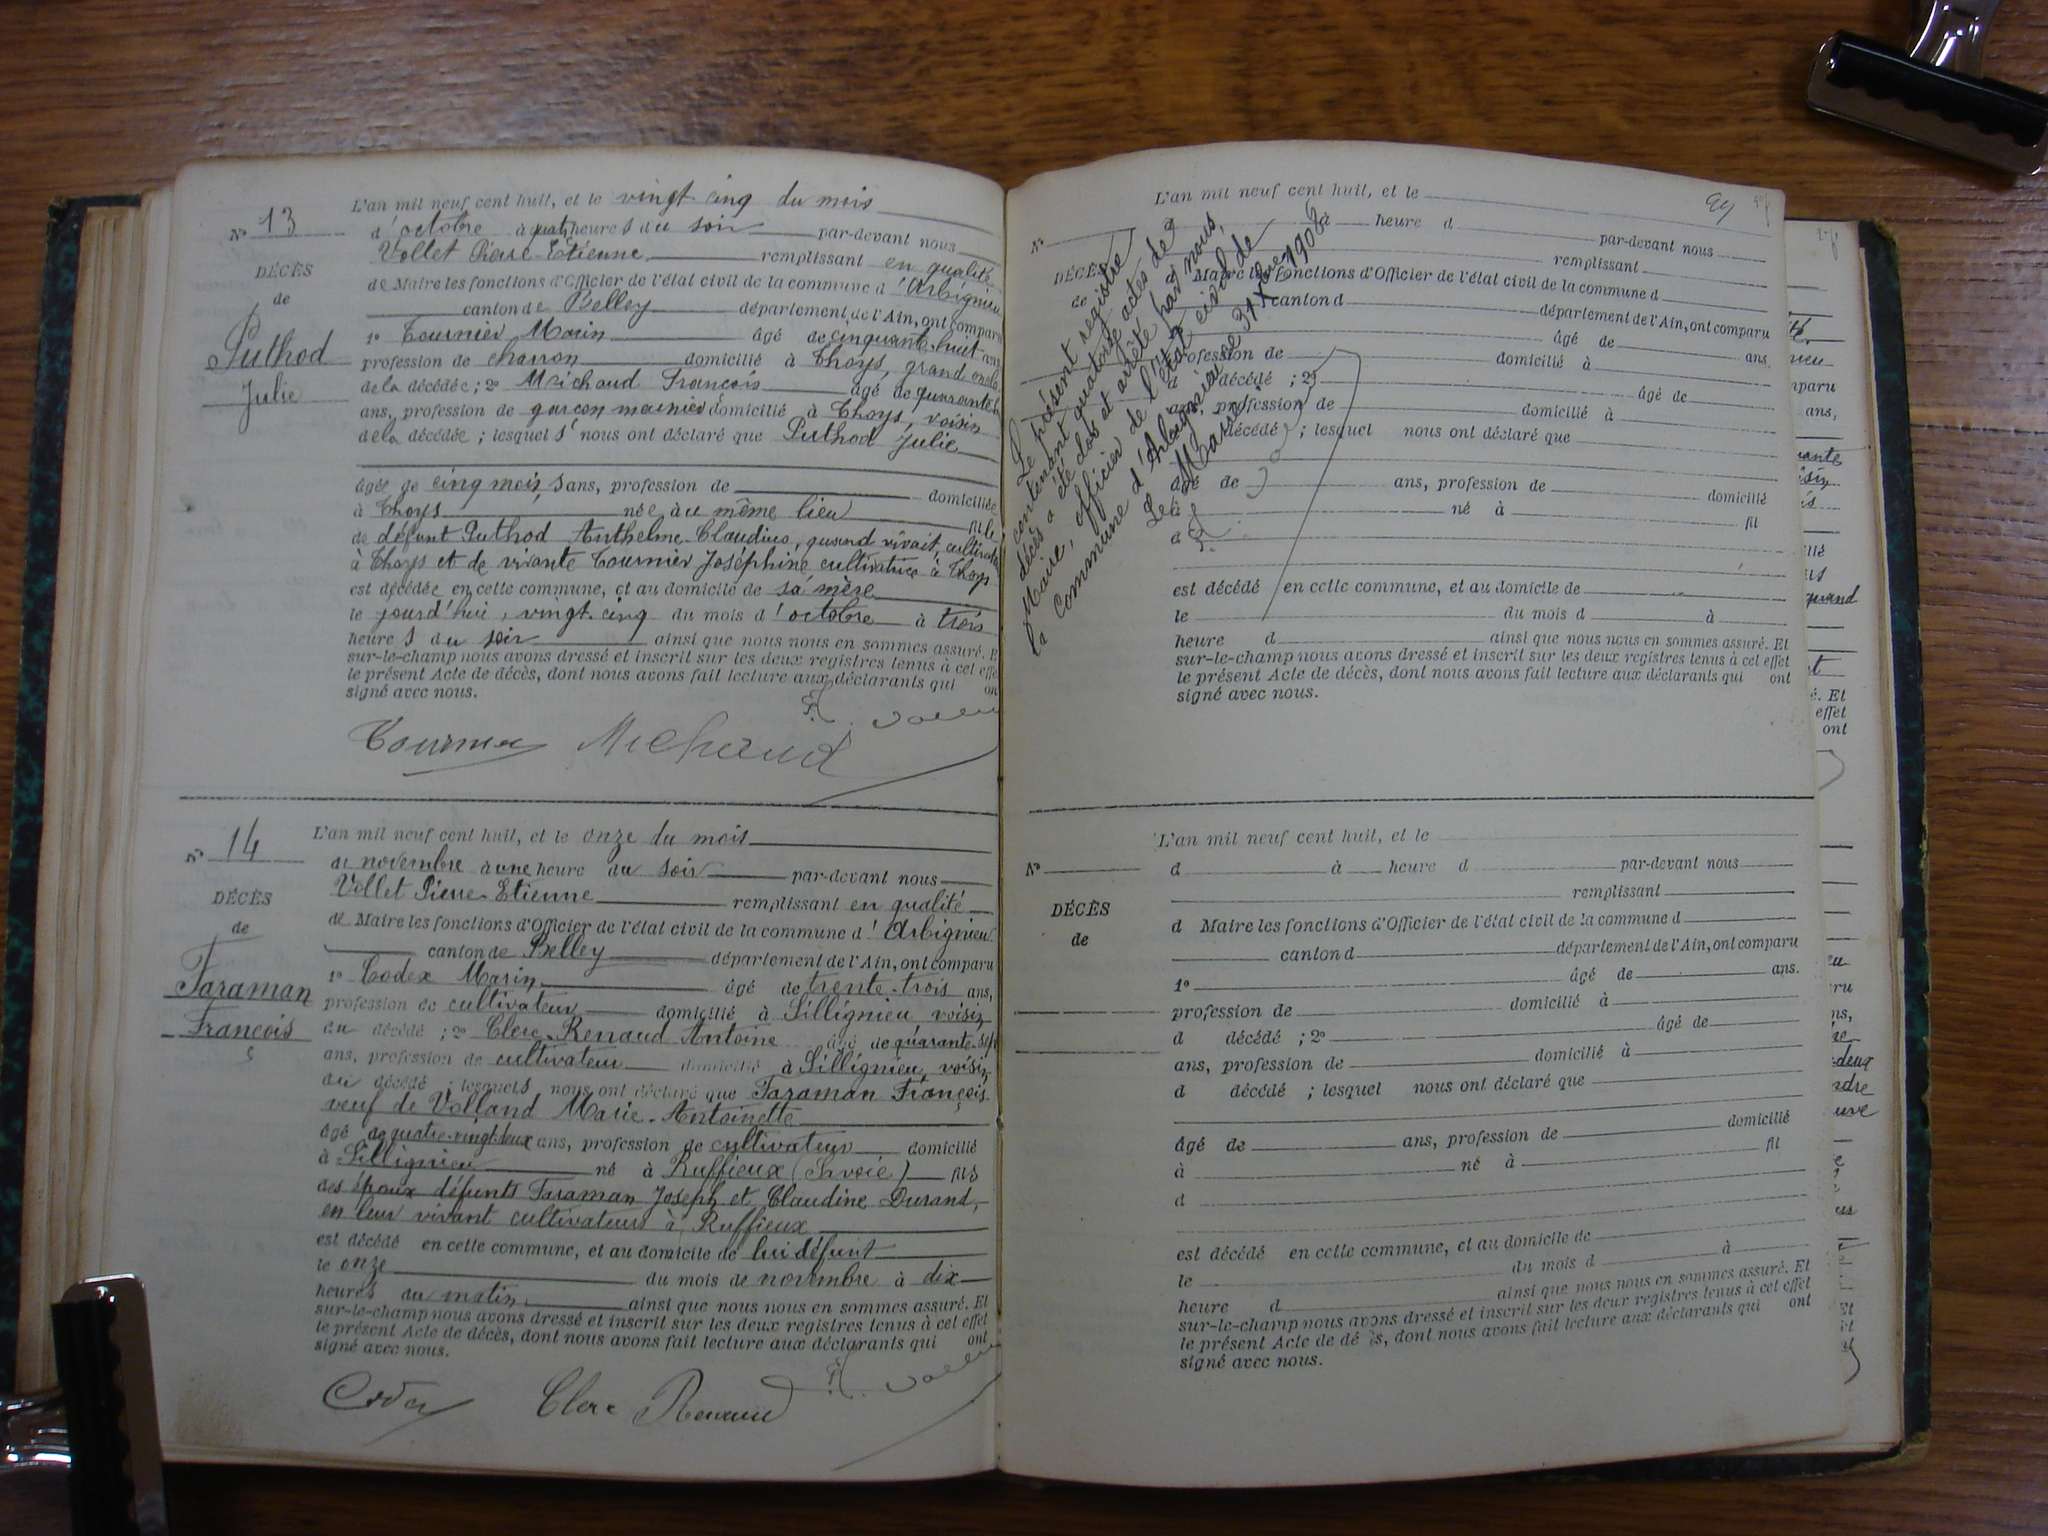 L'an mil neuf cent huit, et le vingt cinq du mois
N° 13
d'octobre à quatre heures du soir par-devant nous
Vollet Pierre-Etienne remplissant en qualité
DÉCÈS
de Maire les fonctions d'Officier de l'état civil de la commune d'Arbignieu
de
canton de Belley département de l'Ain, ont comparu
Puthod
1° Tournier Marin âgé de cinquante-huit ans
profession de charron domicilié à Thoys, grand oncle
Julie
de la décédée ; 2° Michaud François âgé de quarante
ans, profession de garçon meunier domicilié à Thoys, voisin
de la décédée ; lesquels nous ont déclaré que Puthod Julie
âgée de cinq mois, sans, profession de domiciliée
à Thoys née au même lieu fille
de défunt Puthod Anthelme-Claudius, quand vivait, cultivateur
à Thoys et de vivante Tournier Joséphine cultivatrice à Thoys
est décédée en cette commune, et au domicile de sa mère
le jourd'hui, vingt-cinq du mois d'octobre à trois
heures du soir ainsi que nous nous en sommes assuré. E
sur-le-champ nous avons dressé et inscrit sur les deux registres tenus à cet effe
le présent Acte de décès, dont nous avons fait lecture aux déclarants qui on
signé avec nous.
Tournier Michaud P. Vollet
L'an mil neuf cent huit, et le onze du mois
N° 14
de novembre à une heure du soir par-devant nous
Vollet Pierre-Etienne remplissant en qualité
DÉCÈS
de Maire les fonctions d'Officier de l'état civil de la commune d'Arbignieu
de
canton de Belley département de l'Ain, ont comparu
Faraman
1° Codex Marin âgé de trente-trois ans,
profession de cultivateur domicilié à Sillignieu voisin
François
du décédé ; 2° Clerc-Renaud Antoine âgé de quarante-sept
ans, profession de cultivateur domicilié à Sillignieu, voisin
du décédé ; lesquels nous ont déclaré que Faraman François
veuf de Volland Marie-Antoinette
âgé de quatre-vingt-deux ans, profession de cultivateur domicilié
à Sillignieu né à Ruffieux (Savoie) fils
des époux défunts Faraman Joseph et Claudine Durand,
en leur vivant cultivateurs à Ruffieux
est décédé en cette commune, et au domicile de lui défunt
le onze du mois de novembre à dix
heures du matin ainsi que nous nous en sommes assuré. Et
sur-le-champ nous avons dressé et inscrit sur les deux registres tenus à cet effet
le présent Acte de décès, dont nous avons fait lecture aux déclarants qui ont
signé avec nous.
Codex Clerc Renaud P. Vollet
L'an mil neuf cent huit, et le
N°
d à heure d par-devant nous
remplissant
DÉCÈS
d Maire les fonctions d'Officier de l'état civil de la commune d
de
canton d département de l'Ain, ont comparu
âgé de ans
profession de domicilié à
d décédé ; 2° âgé de
ans, profession de domicilié à
d décédé ; lesquel nous ont déclaré que
âgé de ans, profession de domicilié
à né à fil
d
est décédé en cette commune, et au domicile de
le du mois d à
heure d ainsi que nous nous en sommes assuré. Et
sur-le-champ nous avons dressé et inscrit sur les deux registres tenus à cet effet
le présent Acte de décès, dont nous avons fait lecture aux déclarants qui ont
signé avec nous.
Le présent registre
contenant quatorze actes de
décès a été clos et arrêté par nous,
Maire, officier de l'état civil de
la commune d'Arbignieu le 31 Xbre 1908
Le Maire
L'an mil neuf cent huit, et le
N°
d à heure d par-devant nous
remplissant
DÉCÈS
d Maire les fonctions d'Officier de l'état civil de la commune d
de
canton d département de l'Ain, ont comparu
1° âgé de ans.
profession de domicilié à
d décédé ; 2° âgé de
ans, profession de domicilié à
d décédé ; lesquel nous ont déclaré que
âgé de ans, profession de domicilié
à né à fil
d
est décédé en cette commune, et au domicile de
le du mois d à
heure d ainsi que nous nous en sommes assuré. Et
sur-le-champ nous avons dressé et inscrit sur les deux registres tenus à cet effet
le présent Acte de dé ès, dont nous avons fait lecture aux déclarants qui ont
signé avec nous.